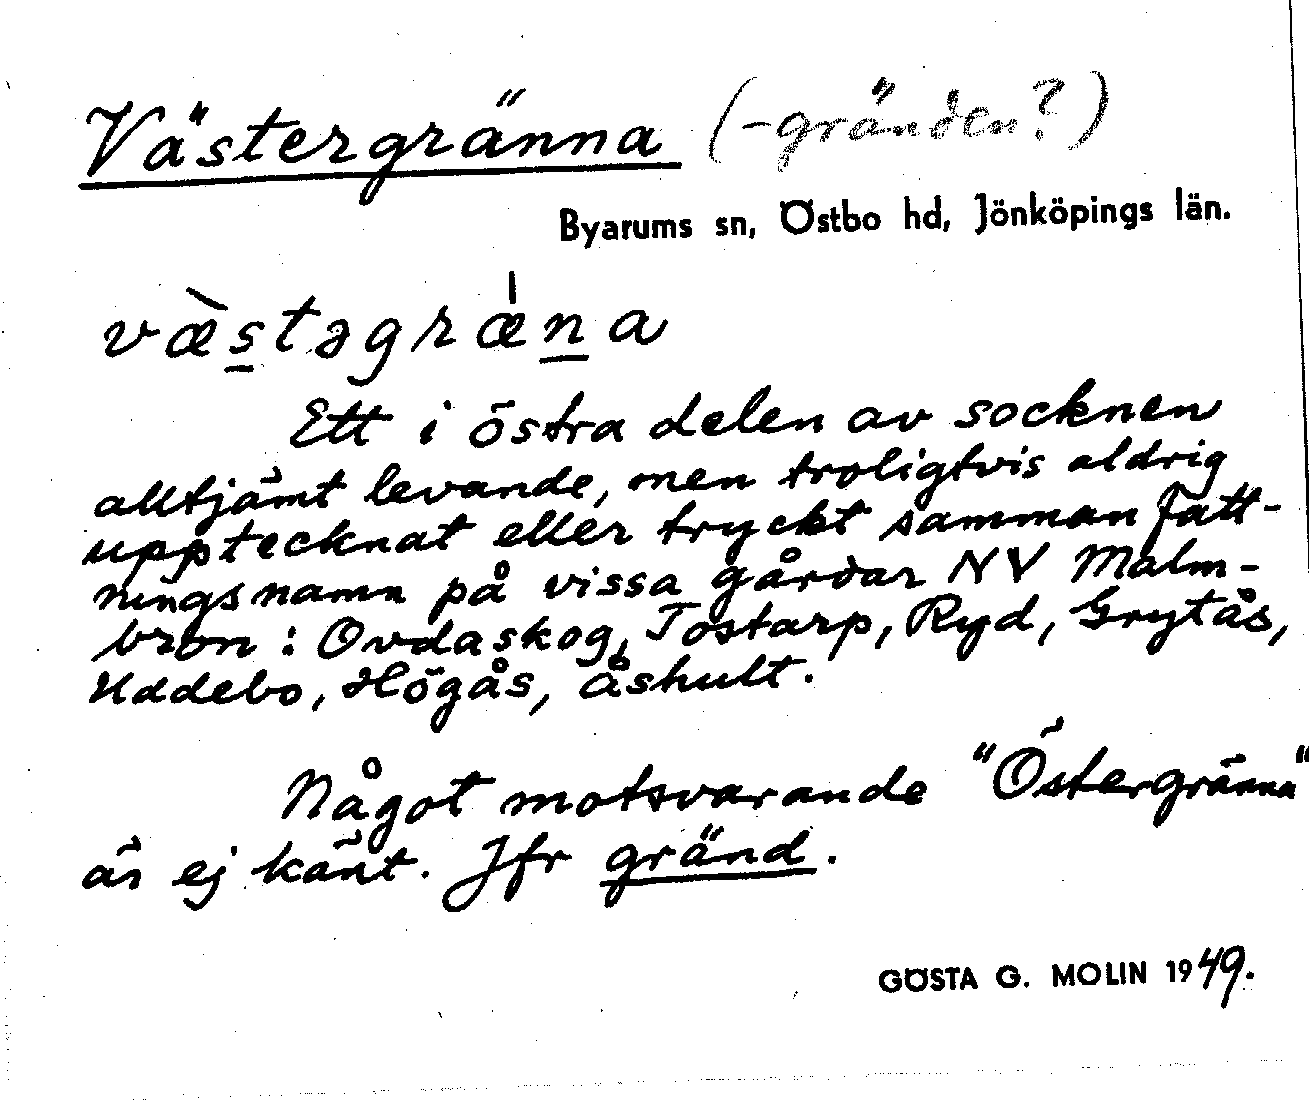 Västergränna (-gränden?)
Byarums sn, Östbo hd, Jönköpings län.
væ̀stəgræ̍na
Ett i östra delen av socknen
alltjämt levande, men troligtvis aldrig
upptecknat eller tryckt sammanfatt-
ningsnamn på vissa gårdar NV Malm-
bron: Ovdaskog, Tostarp, Ryd, Grytås,
Uddebo, Högås, Åshult.
Något motsvarande "Östergränna"
är ej känt. Jfr gränd.
GÖSTA G. MOLIN 1949.